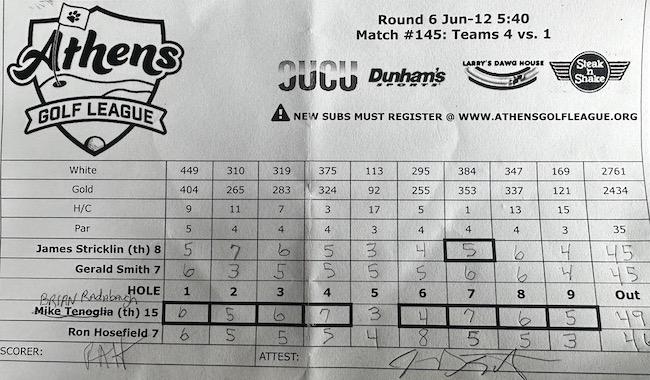 Athens
GOLF LEAGUE
Round 6 Jun-12 5:40
Match #145: Teams 4 vs. 1
OUCU Dunham's SPORTS LARRY'S DAWG HOUSE Steak n Shake
NEW SUBS MUST REGISTER @ WWW.ATHENSGOLFLEAGUE.ORG
White 449 310 319 375 113 295 384 347 169 2761
Gold 404 265 283 324 92 255 353 337 121 2434
H/C 9 11 7 3 17 5 1 13 15
Par 5 4 4 4 3 4 4 4 3 35
James Stricklin (th) 8 5 7 6 5 3 4 5 6 4 45
Gerald Smith 7 6 3 5 5 5 5 6 6 4 45
HOLE 1 2 3 4 5 6 7 8 9 Out
BRIAN
Mike Tenoglia (th) 15 6 5 6 7 3 4 7 6 5 49
Ron Hosefield 7 6 5 5 5 4 8 5 5 3 46
SCORER: ATTEST: